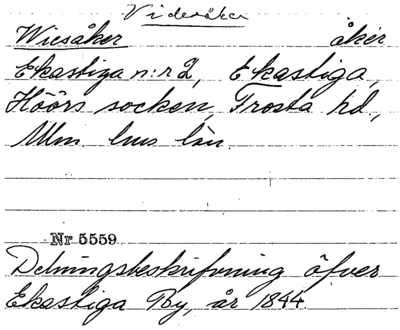 Videsåker
Wicsåker åker
Ekastiga n:r 2, Ekastiga,
Höörs socken, Frosta hd,
Mlm hus län.
Nr 5559
Delningsbeskrifning öfver
Ekastiga By, år 1844